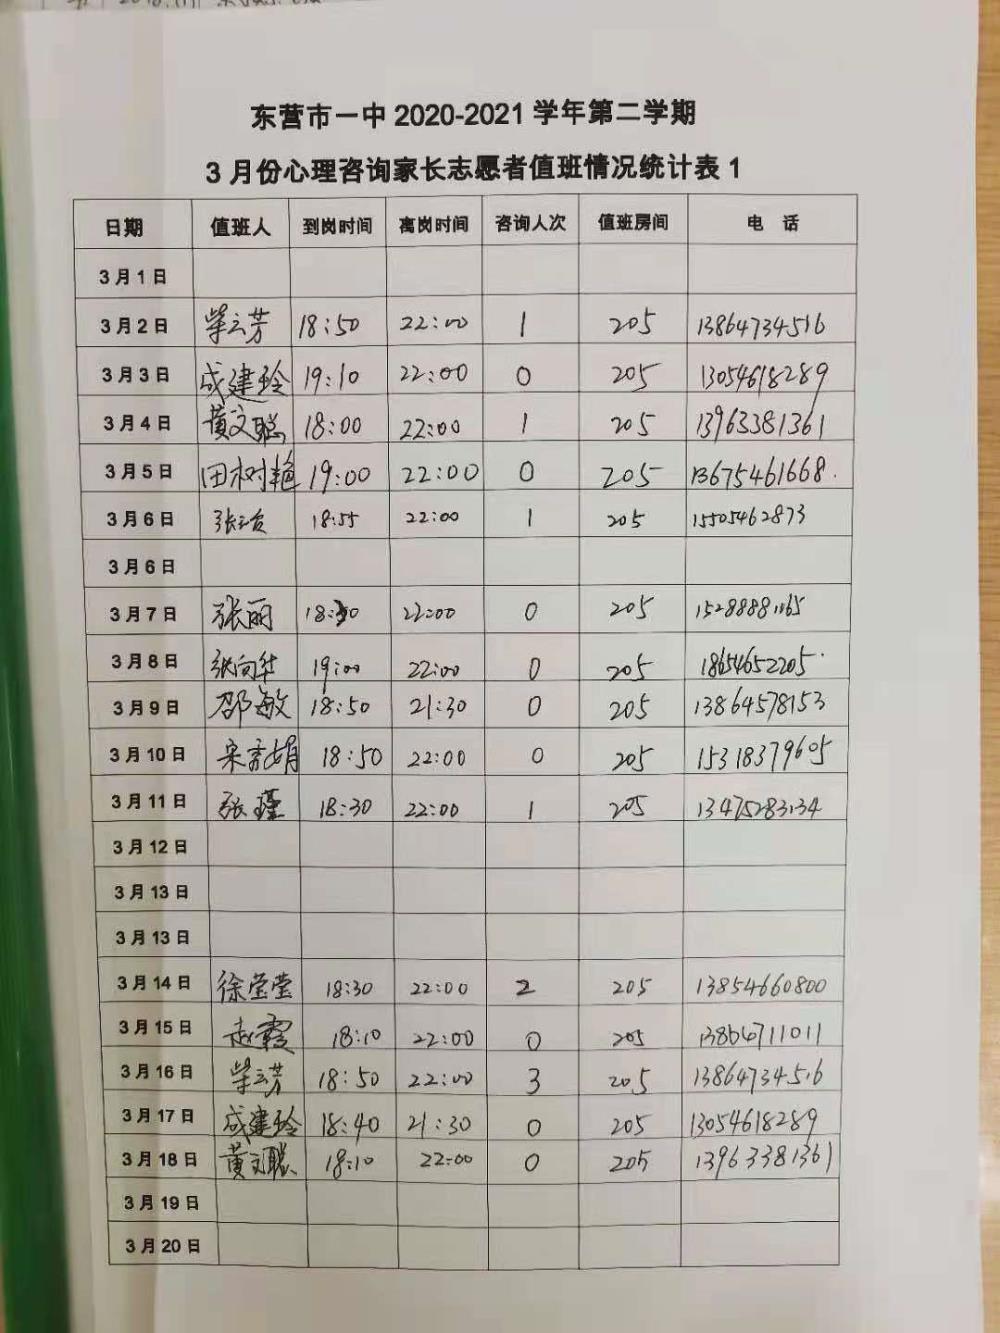 东营市一中 2020-2021 学年第二学期
3 月份心理咨询家长志愿者值班情况统计表 1
日期 值班人 到岗时间 离岗时间 咨询人次 值班房间 电 话
3 月 1 日
3 月 2 日 柴云芳 18:50 22:00 1 205 13864734516
3 月 3 日 成建玲 19:10 22:00 0 205 13054618289
3 月 4 日 黄文聪 18:00 22:00 1 205 13963381361
3 月 5 日 田树艳 19:00 22:00 0 205 13675461668.
3 月 6 日 18:55 22:00 1 205 15505462873
3 月 6 日
3 月 7 日 张丽 18:30 22:00 0 205
3 月 8 日 张向华 19:00 22:00 0 205 18654652205.
3 月 9 日 邵敏 18:50 21:30 0 205 13864578153
3 月 10 日 18:50 22:00 0 205 15318379605
3 月 11 日 张瑾 18:30 22:00 1 205 13475283134
3 月 12 日
3 月 13 日
3 月 13 日
3 月 14 日 徐莹莹 18:30 22:00 2 205 13854660800
3 月 15 日 赵霞 18:10 22:00 0 205 13864711011
3 月 16 日 柴云芳 18:50 22:00 3 205 13864734516
3 月 17 日 成建玲 18:40 21:30 0 205 13054618289
3 月 18 日 黄文聪 18:10 22:00 0 205 13963381361
3 月 19 日
3 月 20 日